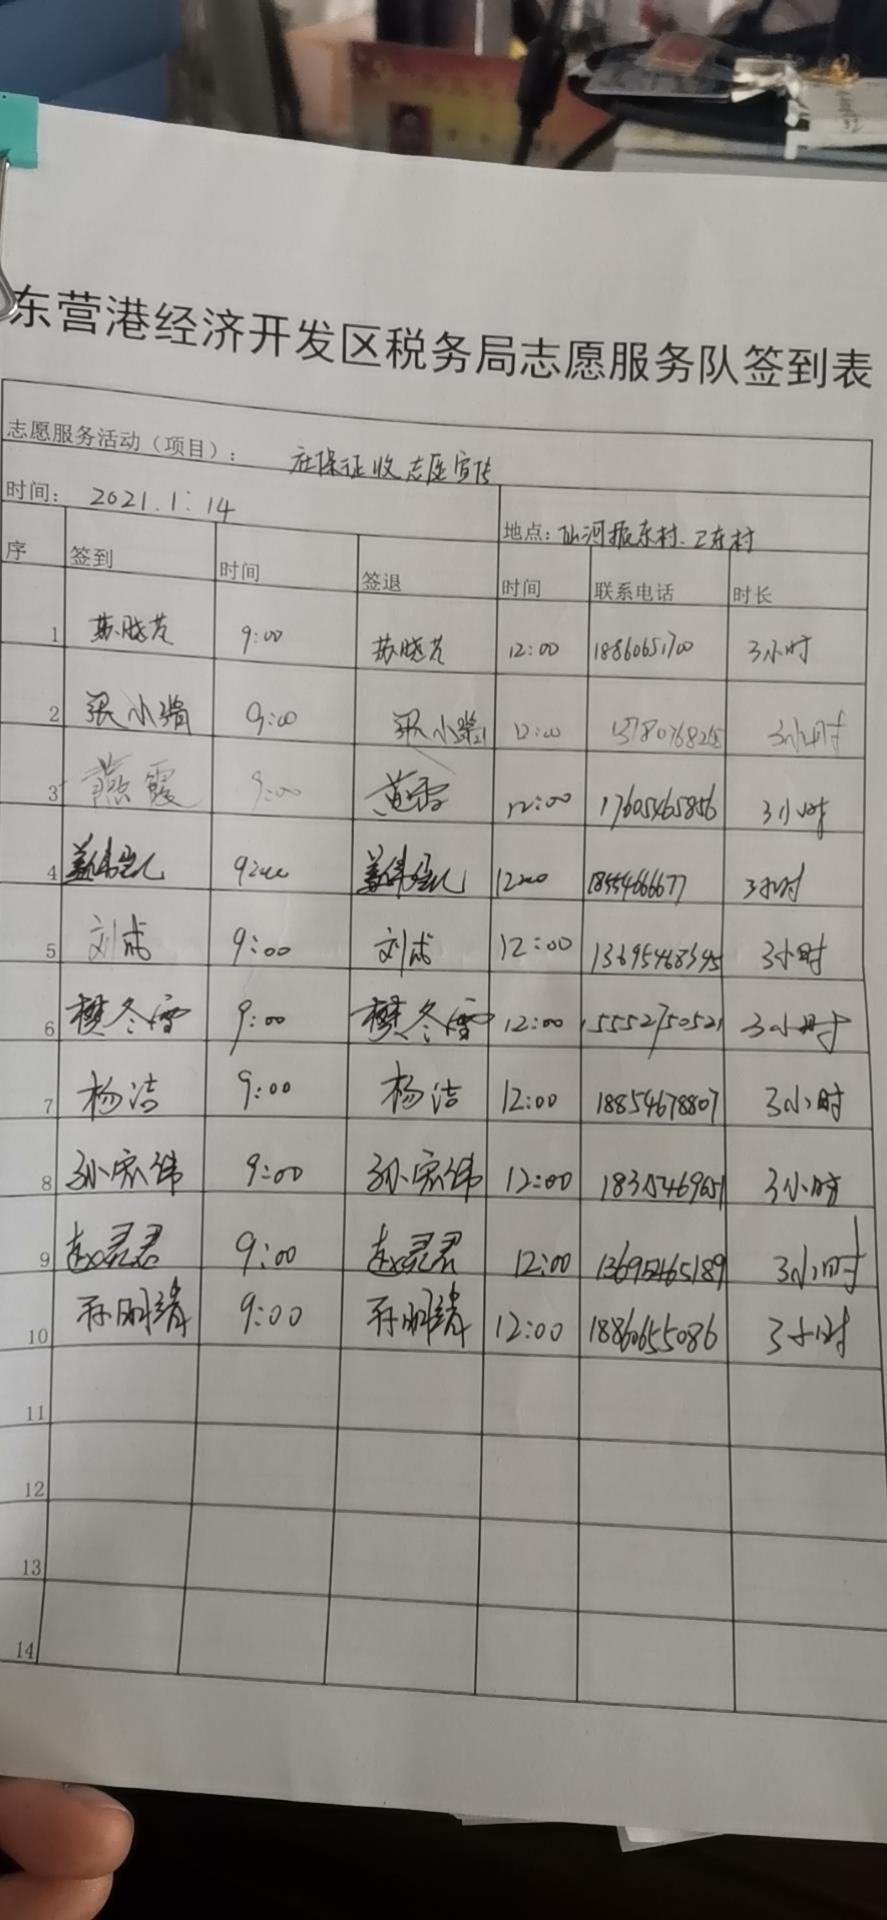 东营港经济开发区税务局志愿服务队签到表
志愿服务活动（项目）： 社保征收志愿宣传
时间： 2021.1.14 地点：仙河振东村、卫东村
序 签到 时间 签退 时间 联系电话 时长
1 苏晓芳 9:00 苏晓芳 12:00 18860651700 3小时
2 张小瑞 9:00 张小瑞 12:00 3小时
3 燕霞 9:00 12:00 17605465856 3小时
4 9:00 12:00 18554666677 3小时
5 刘成 9:00 刘成 12:00 13695468345 3小时
6 樊冬雪 9:00 樊冬雪 12:00 15552750521 3小时
7 杨洁 9:00 杨洁 12:00 18854678807 3小时
8 孙宏伟 9:00 孙宏伟 12:00 18315469651 3小时
9 赵灵君 9:00 赵灵君 12:00 3小时
10 孙明清 9:00 孙明清 12:00 18860655086 3小时
11
12
13
14